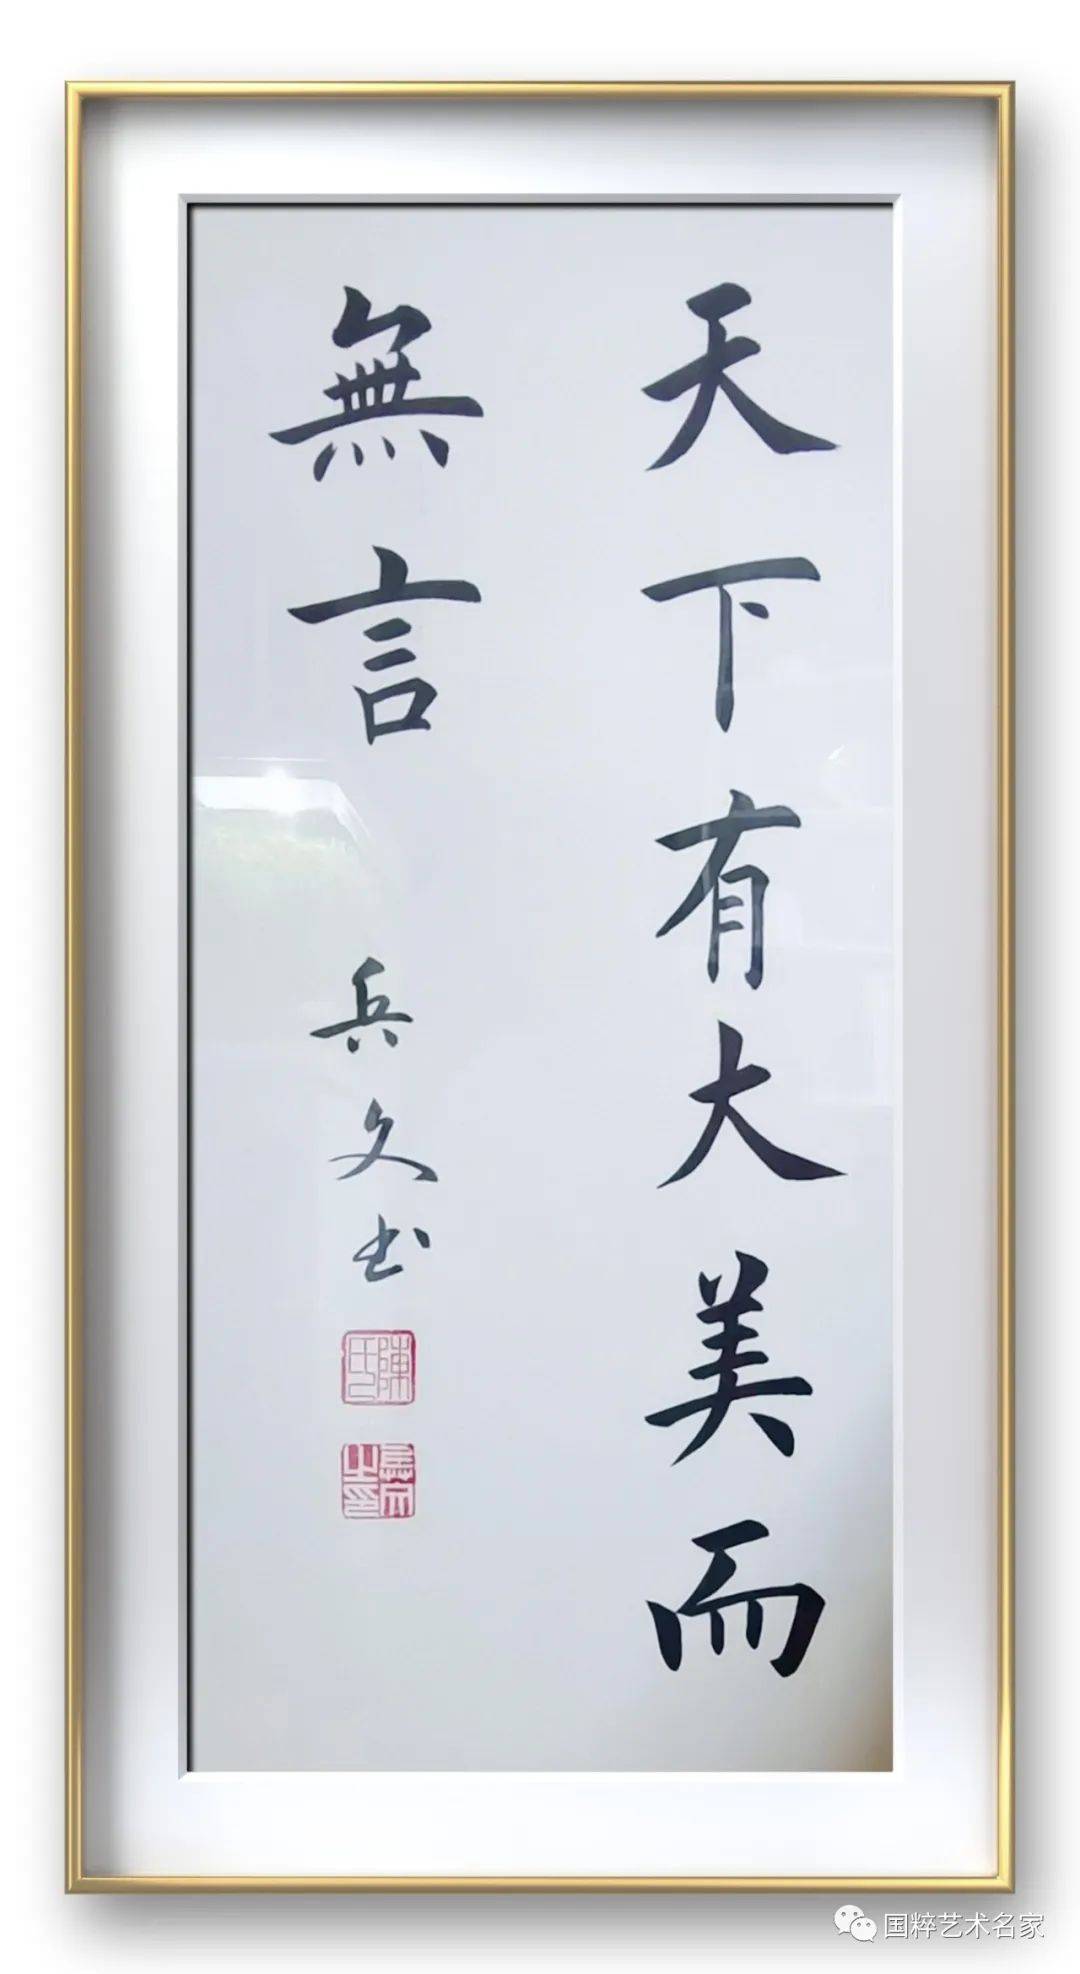 天下有大美而
無言
兵文书
陳氏
国粹艺术名家